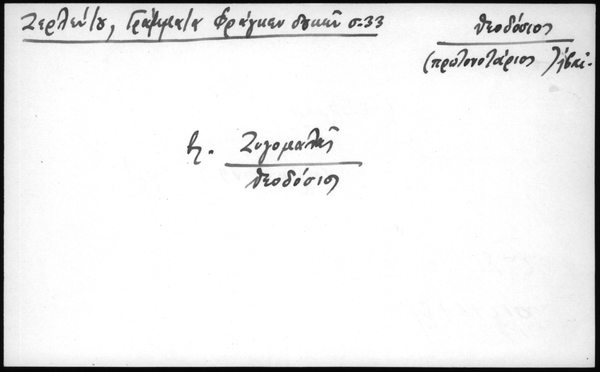 Ζερλέντ/ου, Γράμμα/α Φράγκων δουκῶν σ. 33
Θεοδόσιος
(πρωτονοτάριος)
βλ. Ζυγομαλᾶς
Θεοδόσιος